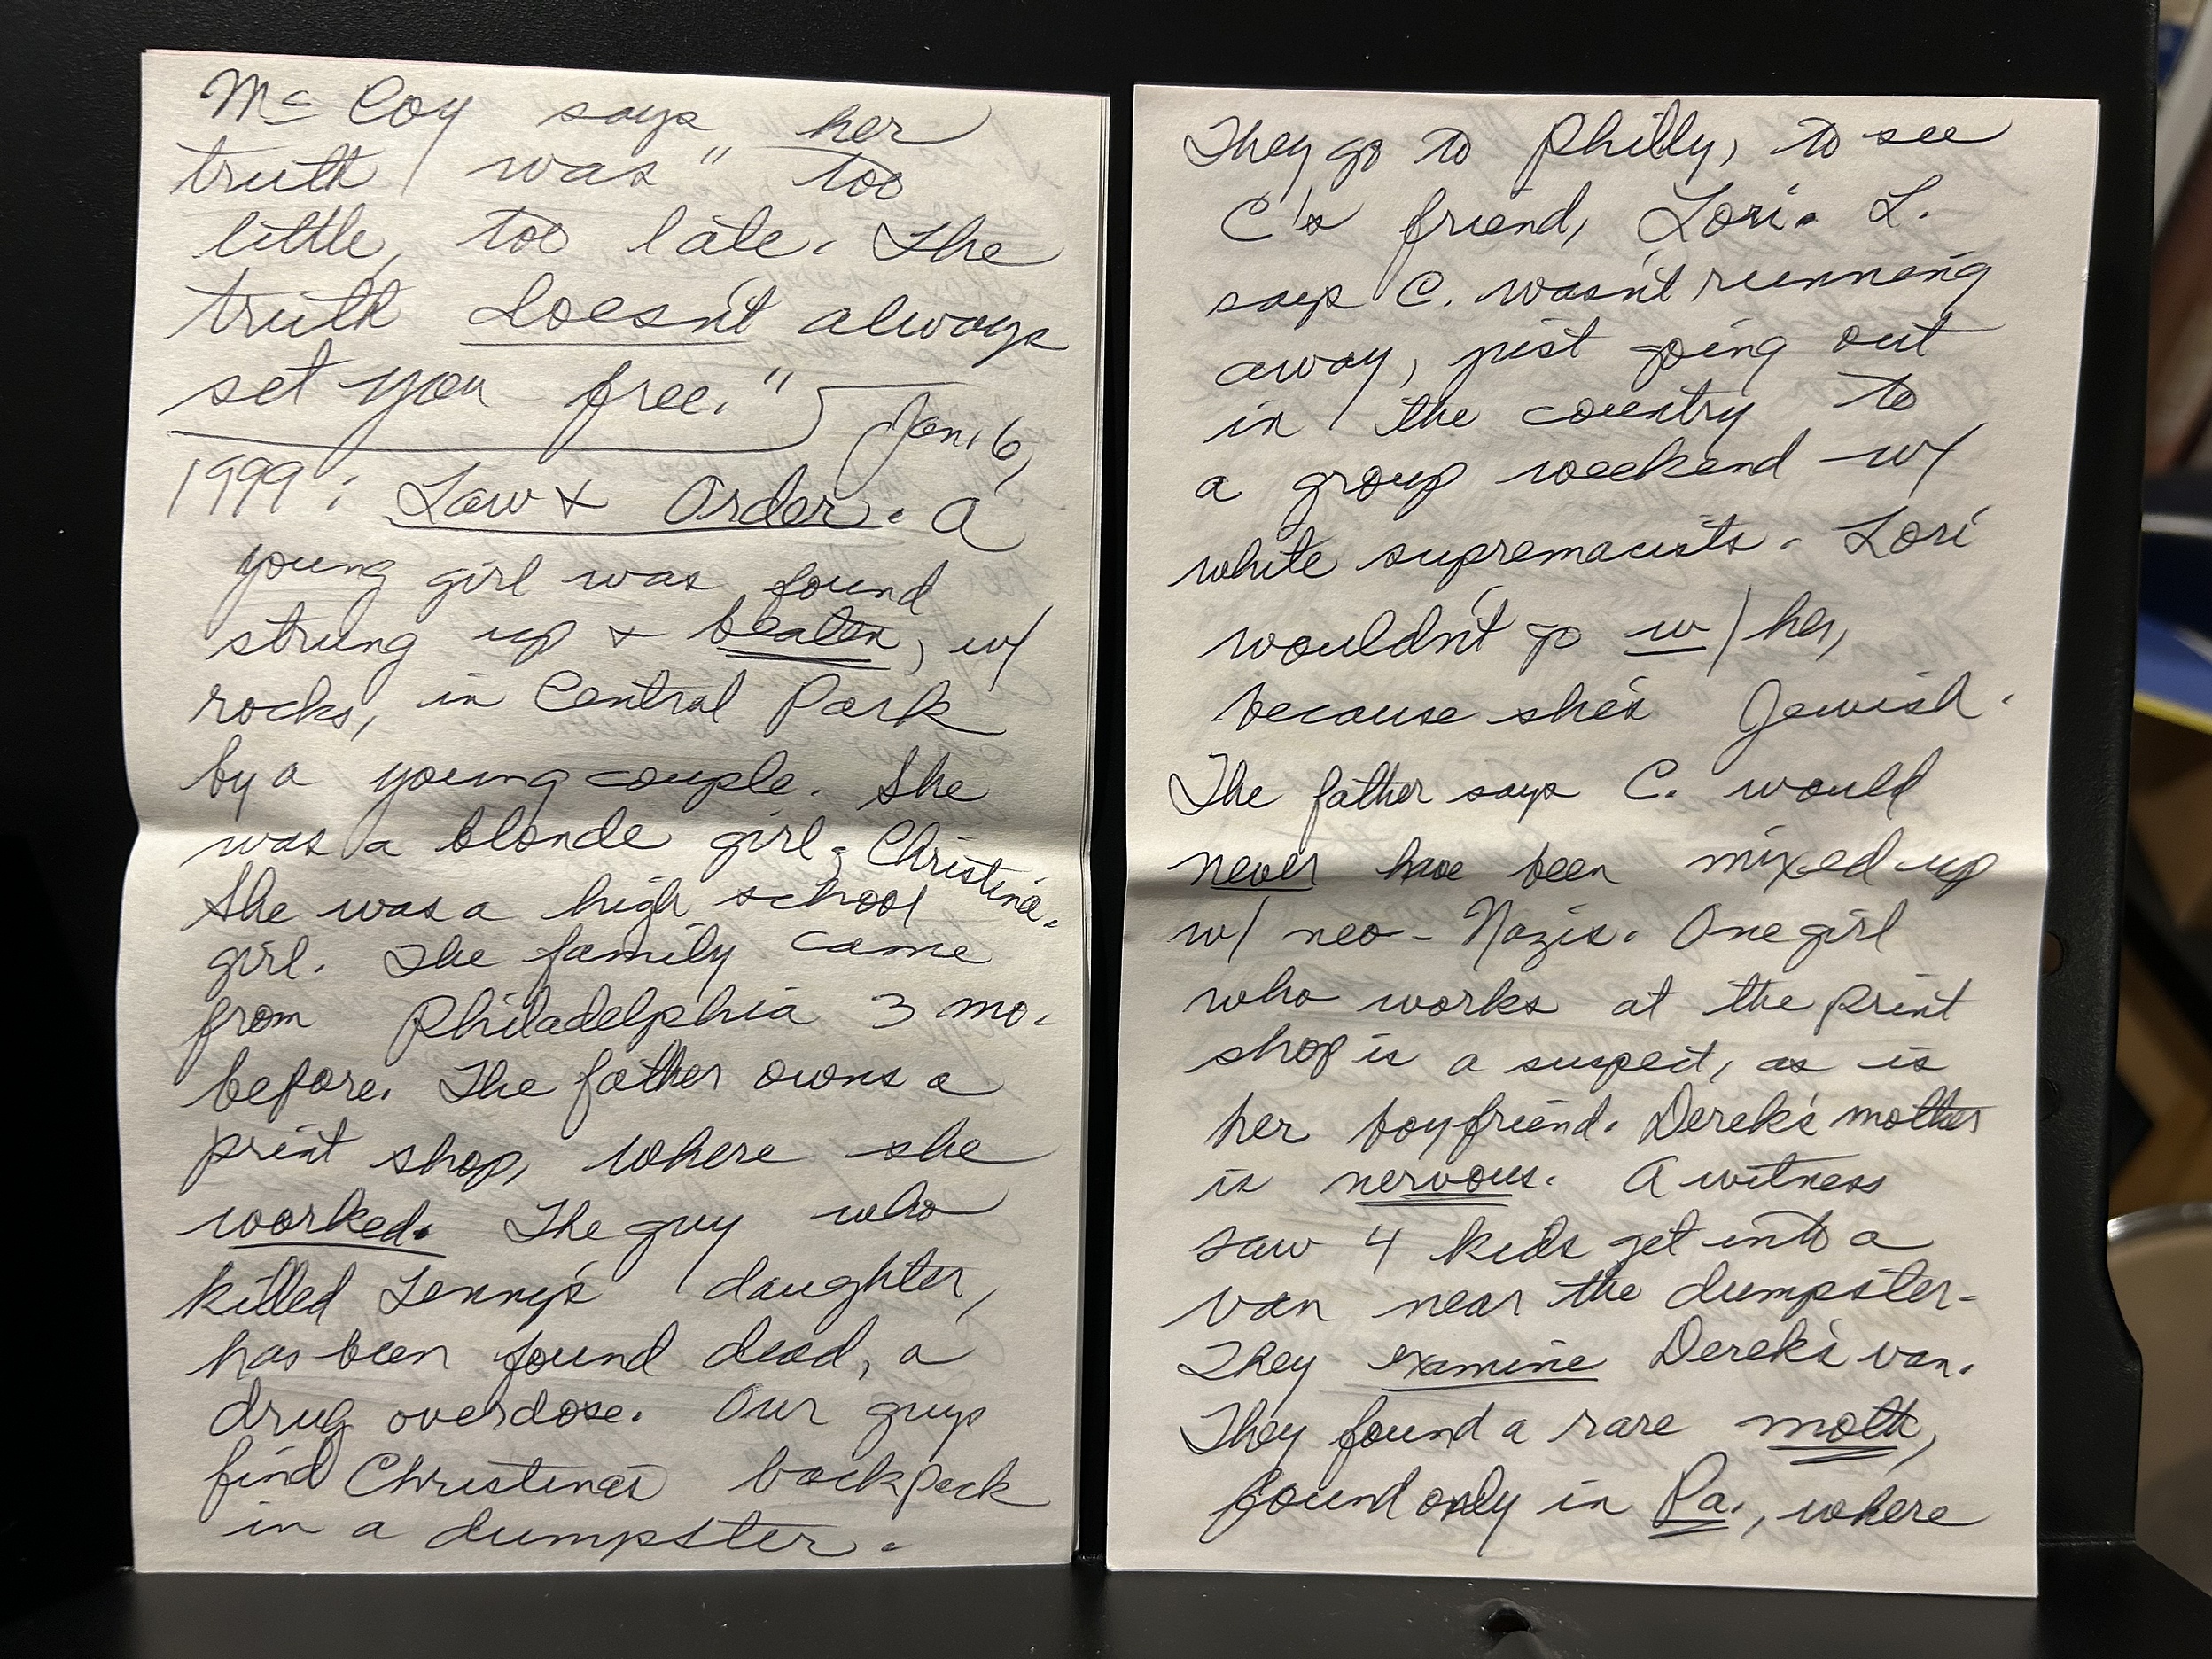 Mc Coy says her
truth was "too
little, too late. The
truth doesn't always
set you free."
Jan. 6,
1999: Law & Order. A
young girl was found
strung up & beaten, w/
rocks, in Central Park
by a young couple. She
was a blonde girl, Christina.
She was a high school
girl. The family came
from Philadelphia 3 mo.
before. The father owns a
print shop, where she
worked. The guy who
killed Lenny's daughter,
has been found dead, a
drug overdose. Our guys
find Christina's backpack
in a dumpster.
They go to Philly, to see
C's friend, Lori. L.
says C. wasn't running
away, just going out
in the country to
a group weekend w/
white supremacists. Lori
wouldn't go w/ her,
because she's Jewish.
The father says C. would
never have been mixed up
w/ neo-Nazis. One girl
who works at the print
shop is a suspect, as is
her boyfriend. Derek's mother
is nervous. A witness
saw 4 kids get into a
van near the dumpster.
They examine Derek's van.
They found a rare moth,
found only in Pa., where